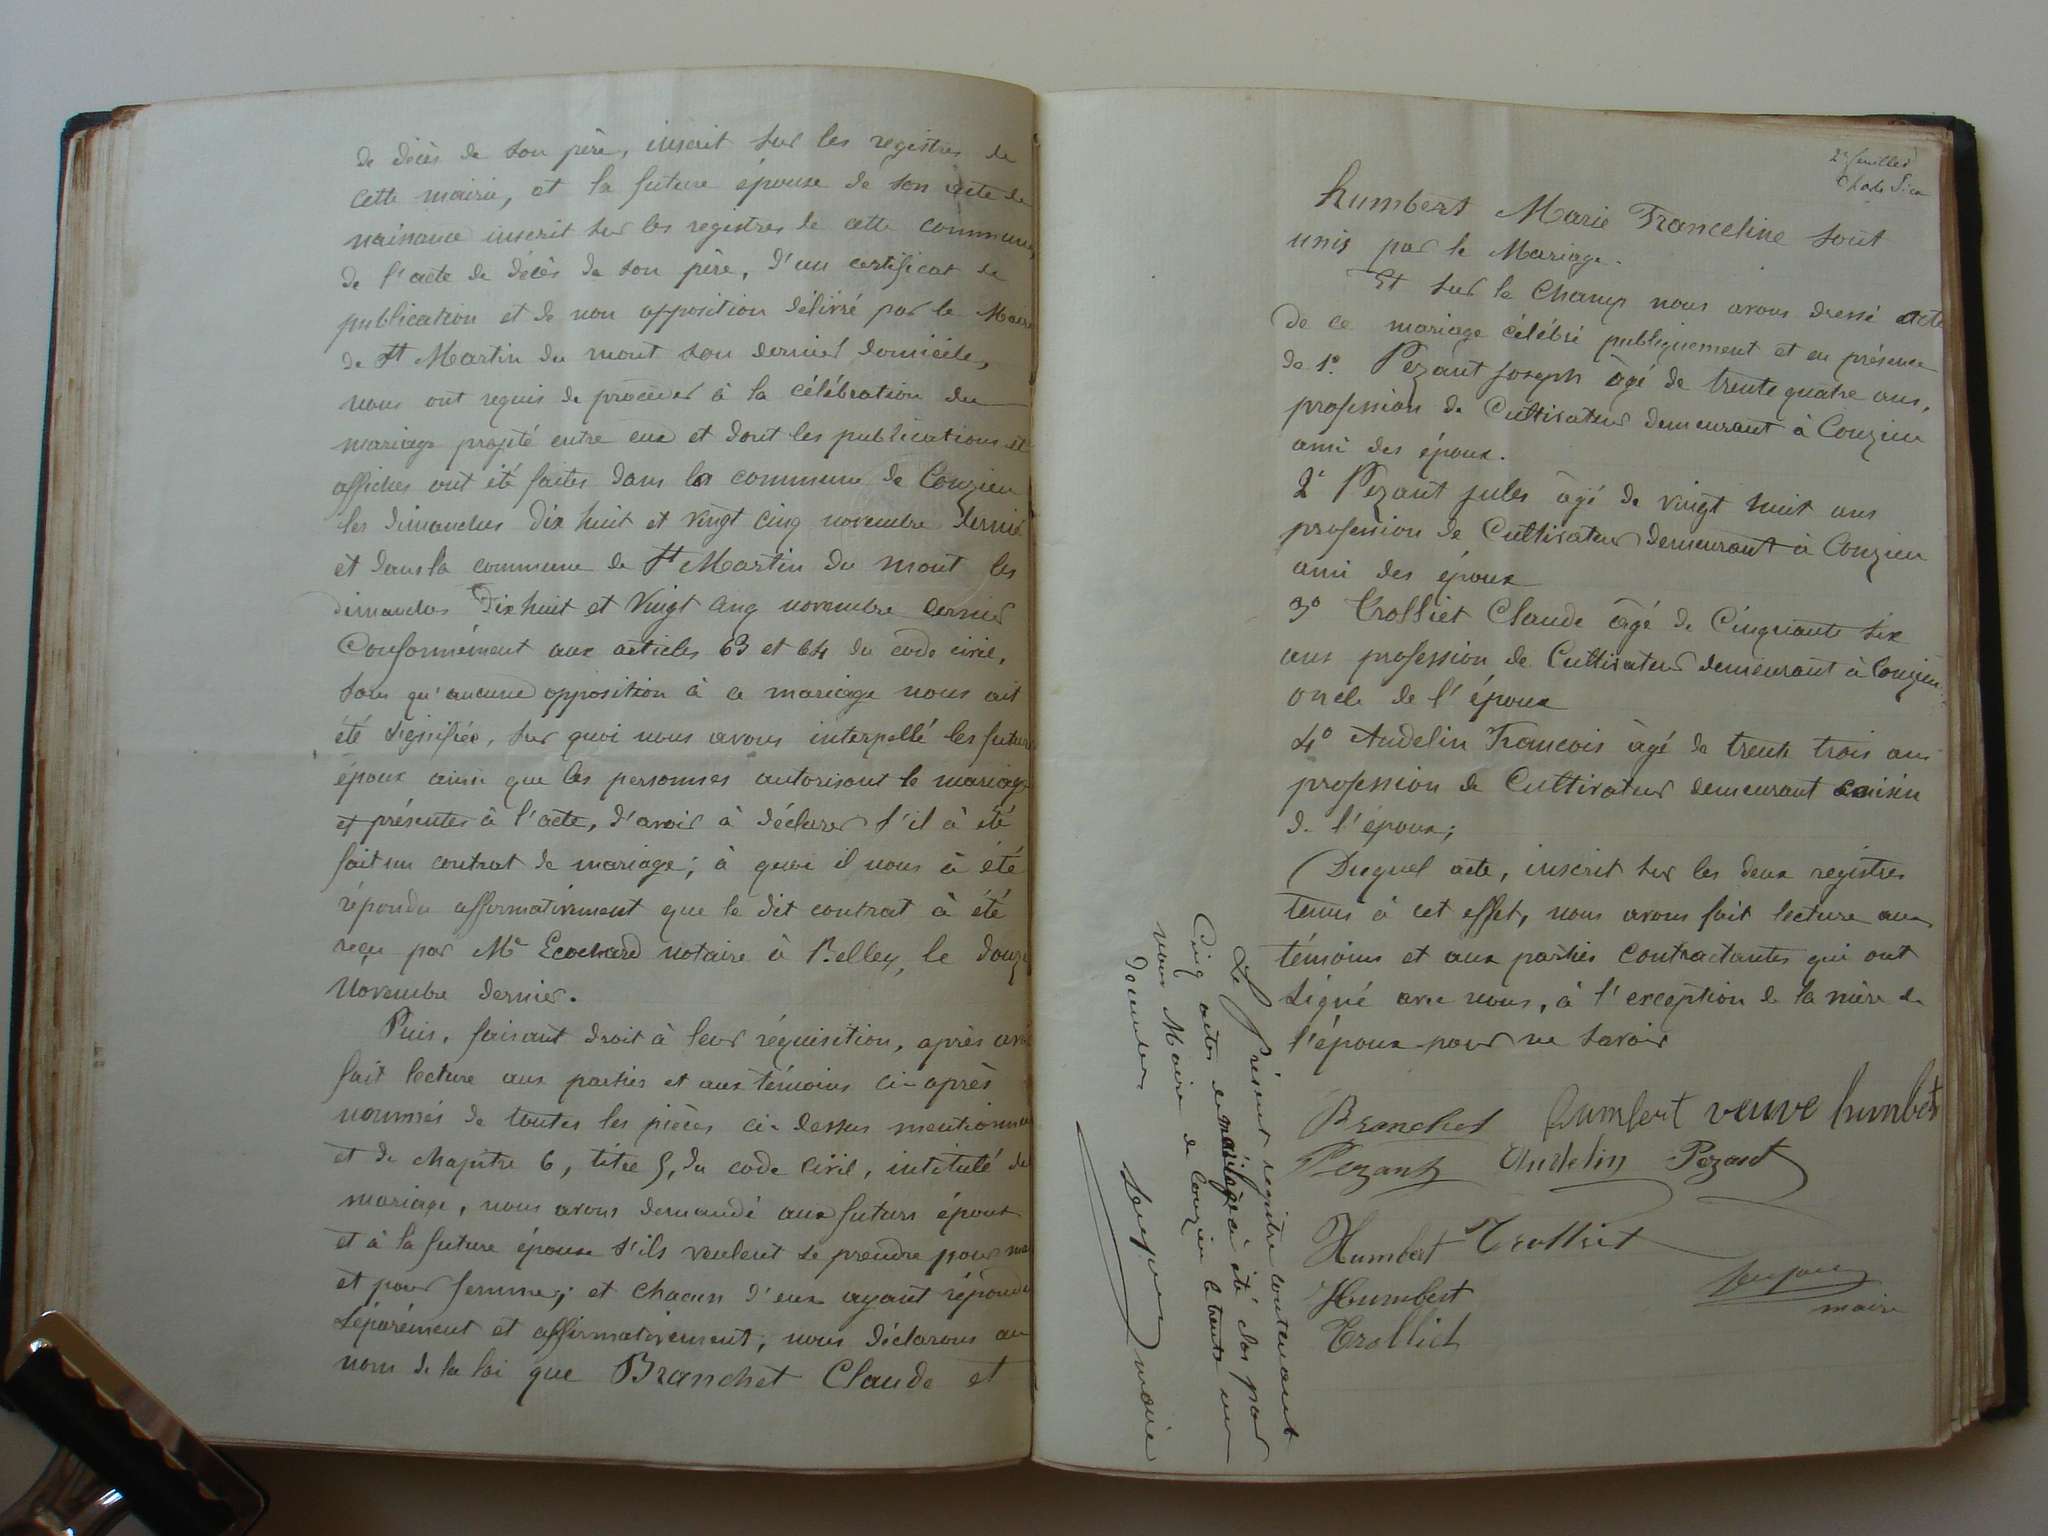 de décès de son père, inscrit sur les registres de
cette mairie, et la future épouse de son acte de
naissance inscrit sur les registres de cette commune,
de l'acte de décès de son père, d'un certificat de
publication et de non opposition délivré par le Maire
de St Martin du mont son dernier domicile,
nous ont requis de procéder à la célébration du
mariage projeté entre eux et dont les publications et
affiches ont été faites dans la commune de Conzieu
les dimanches dix huit et vingt cinq novembre dernier
et dans la commune de St Martin du mont les
dimanches dix huit et vingt cinq novembre dernier
Conformément aux articles 63 et 64 du code civil,
sans qu'aucune opposition à ce mariage nous ait
été signifiée, sur quoi nous avons interpellé les futurs
époux ainsi que les personnes autorisant le mariage
et présentes à l'acte, d'avoir à déclarer s'il à été
fait un contrat de mariage; à quoi il nous à été
répondu affirmativement que le dit contrat à été
reçu par Me Ecochard notaire à Belley, le douze
Novembre dernier.
Puis, faisant droit à leur réquisition, après avoir
fait lecture aux parties et aux témoins ci-après
nommés de toutes les pièces ci-dessus mentionnées
et du chapitre 6, titre 5, du code civil, intitulé du
mariage, nous avons demandé aux futurs époux
et à la future épouse s'ils veulent se prendre pour mari
et pour femme; et chacun d'eux ayant répondu
séparément et affirmativement, nous déclarons au
nom de la loi que Branchet Claude et
2e feuillet
humbert Marie Franceline sont
unis par le Mariage.
Et sur le champ nous avons dressé acte
de ce mariage célébré publiquement et en présence
de 1° Pezant Joseph âgé de trente quatre ans,
profession de Cultivateur demeurant à Conzieu
ami des époux.
2° Pezant Jules âgé de vingt huit ans
profession de Cultivateur demeurant à Conzieu
ami des époux
3° Trolliet Claude âgé de Cinquante six
ans profession de Cultivateur demeurant à Conzieu
oncle de l'époux
4° Andelin Francois âgé de trente trois ans
profession de Cultivateur demeurant cousin
de l'époux;
Duquel acte, inscrit sur les deux registres
tenus à cet effet, nous avons fait lecture aux
témoins et aux parties contractantes qui ont
signé avec nous, à l'exception de la mère de
l'époux pour ne savoir
Branchet humbert veuve humbert
Pezant Andelin Pezant
Humbert Trolliet
Humbert
maire
Trolliet
Le Présent registre contenant
Cinq actes de mariage à été clos par
nous Maire de Conzieu le trente un
décembre
maire